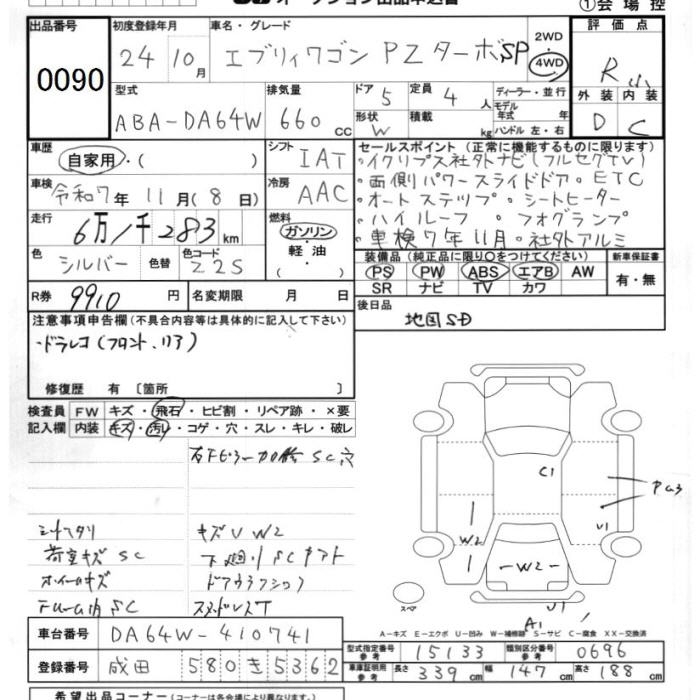 オークション出品申込書 ①会場控
出品番号 初度登録年月 車名・グレード 2WD 評価点
0090 24年10月 エブリィワゴン PZターボSP 4WD R
型式 排気量 ドア 5 定員 4人 ディーラー・並行 外装 内装
ABA-DA64W 660cc 形状 W 積載 kg モデル年式 年 ハンドル 左・右 D C
車歴 自家用・( ) シフト IAT セールスポイント(正常に機能するものに限ります)
・イクリプス社外ナビ(フルセグTV)
車検 令和7年11月(8日) 冷房 AAC ・両側パワースライドドア・ETC
・オートステップ・シートヒーター
走行 6万1千283km 燃料 ガソリン・軽油 ・ハイルーフ・フォグランプ
・車検7年11月・社外アルミ
色 シルバー 色替 色コード Z2S 装備品(純正品に限り○をつけてください) 新車保証書
PS PW ABS エアB AW 有・無
SR ナビ TV カワ
R券 9910円 名変期限 月 日 後日品
地図SD
注意事項申告欄(不具合内容等は具体的に記入して下さい)
・ドラレコ(フロント、リア)
修復歴 有〔箇所 〕
検査員 FW キズ・飛石・ヒビ割・リペア跡・×要
記入欄 内装 キズ・汚レ・コゲ・穴・スレ・キレ・破レ
シートヘタリ キズU W2
荷室キズ SC 下廻りSC
ホイールキズ
SC
C1
W2 PG3 U1
W2
スペア U1
A1
A-キズ E-エクボ U-凹み W-補修跡 S-サビ C-腐食 XX-交換済
車台番号 DA64W-410741 型式指定番号 参考 15133 類別区分番号 参考 0696
登録番号 成田 580き5362 車庫証明用参考 長さ 339cm 幅 147cm 高さ 188cm
希望出品コーナー(出品コーナーは各会場により異なります)